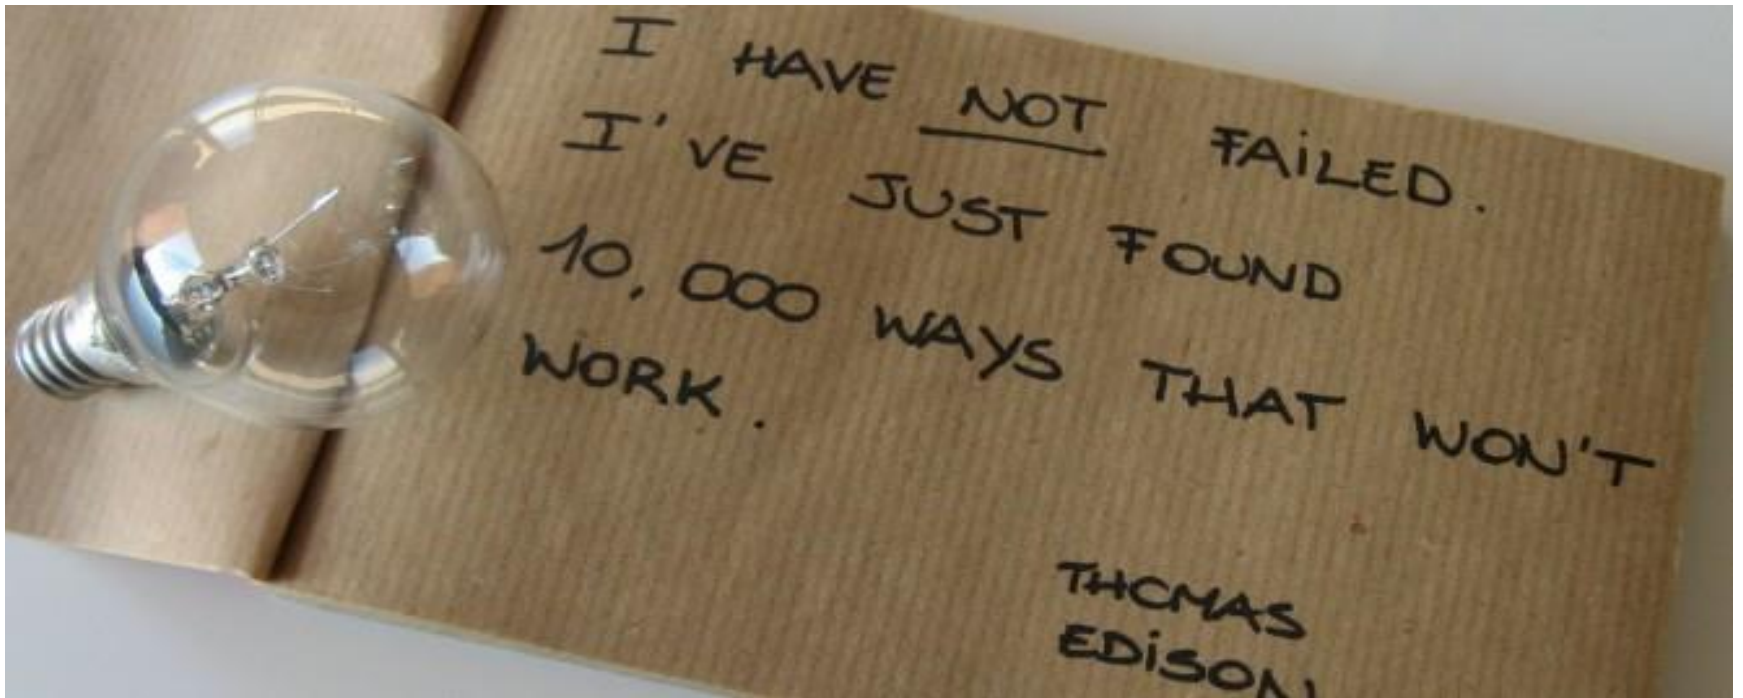 I HAVE NOT FAILED.
I'VE JUST FOUND
10,000 WAYS THAT WON'T
WORK.
THOMAS
EDiSON